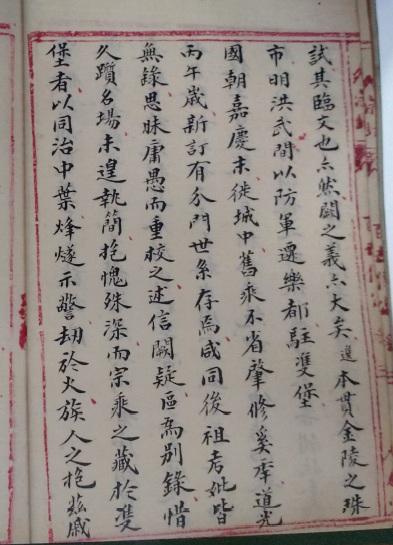 試其臨文也亦然闕之義亦大矣選本貫金陵之珠
市明洪武間以防軍遷樂都駐雙堡
國朝嘉慶末徙城中舊乘不省肇修奚庠道光
丙午歲新訂有分門世系存焉咸同後祖考妣皆
無錄思昧庸愚而重校之述信闕疑區為別錄惜
久躓名場未遑執簡抱愧殊深而宗乘之藏於雙
堡者以同治中葉烽燧示警劫於火族人之抱茲戚